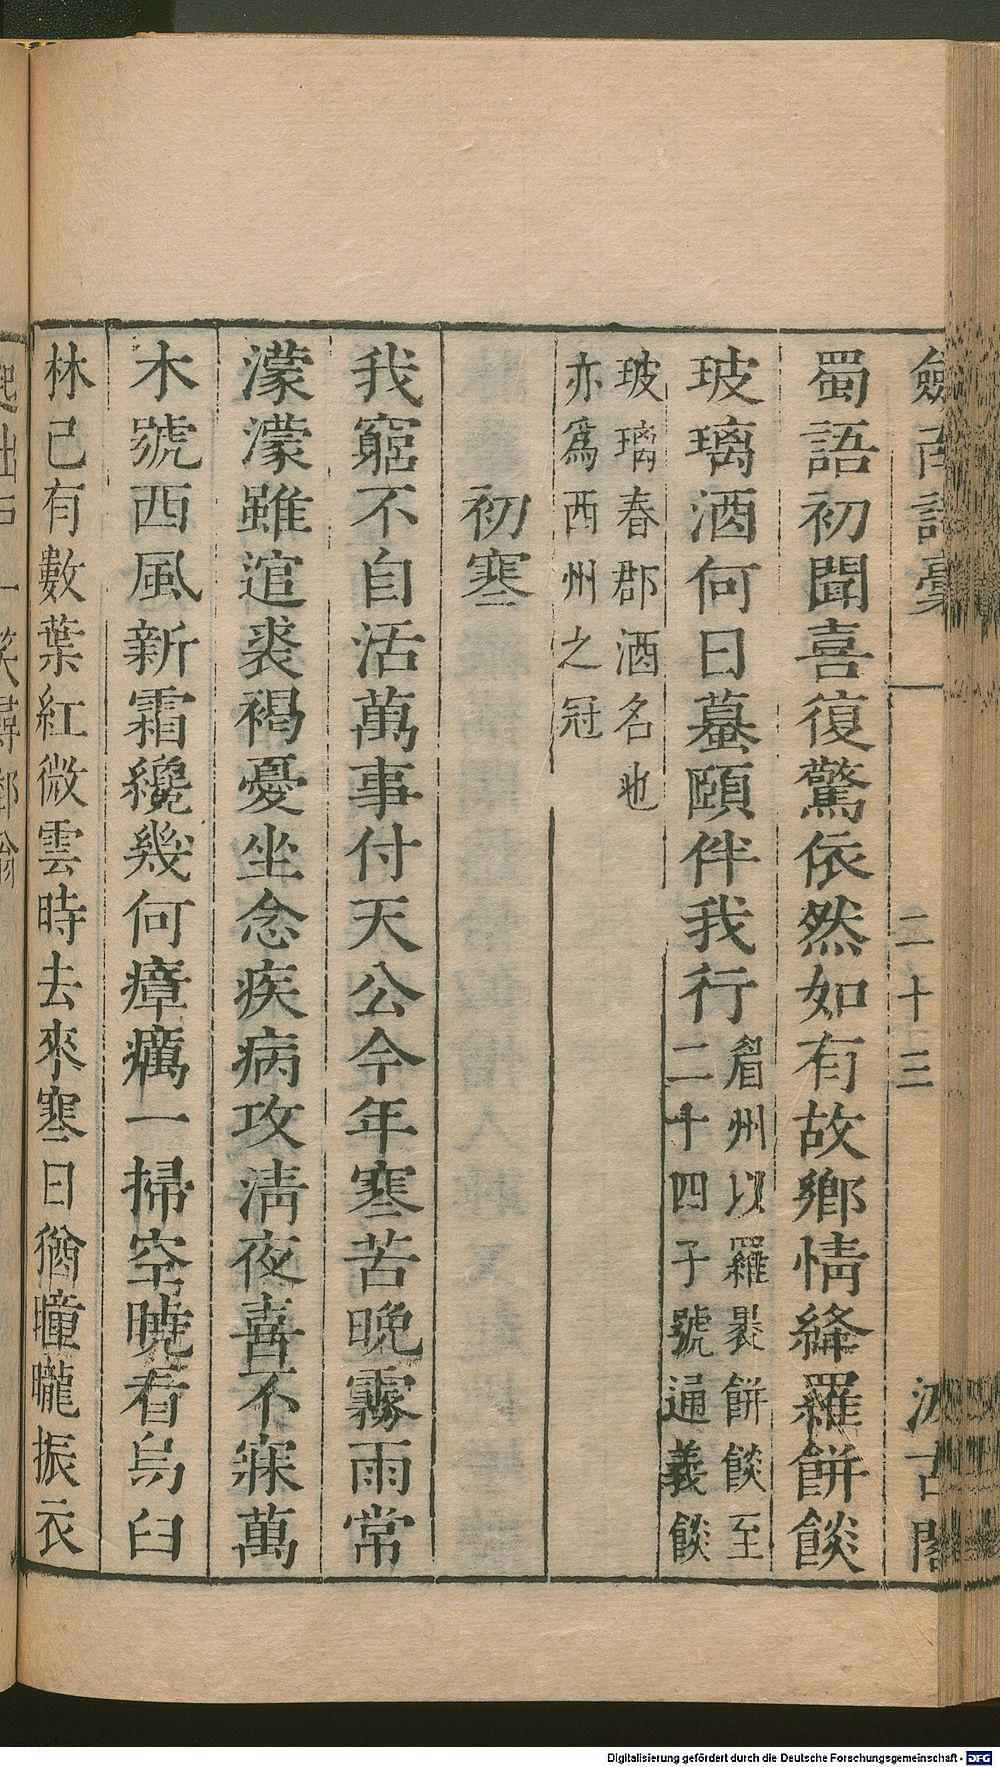 劍南詩稾
二十三
汲古閣
蜀語初聞喜復驚依然如有故鄉情絳羅餅餤
玻瓈酒何日蟇頤伴我行
眉州以羅裹餅餤至
二十四子號通義餤
玻瓈春郡酒名也
亦爲西州之冠
初寒
我窮不自活萬事付天公今年寒苦晚霧雨常
濛濛雖逭裘褐憂坐念疾病攻淸夜喜不寐萬
木號西風新霜纔幾何瘴癘一掃空曉看烏臼
林已有數葉紅微雲時去來寒日猶曈曨振衣
Digitalisierung gefördert durch die Deutsche Forschungsgemeinschaft - DFG